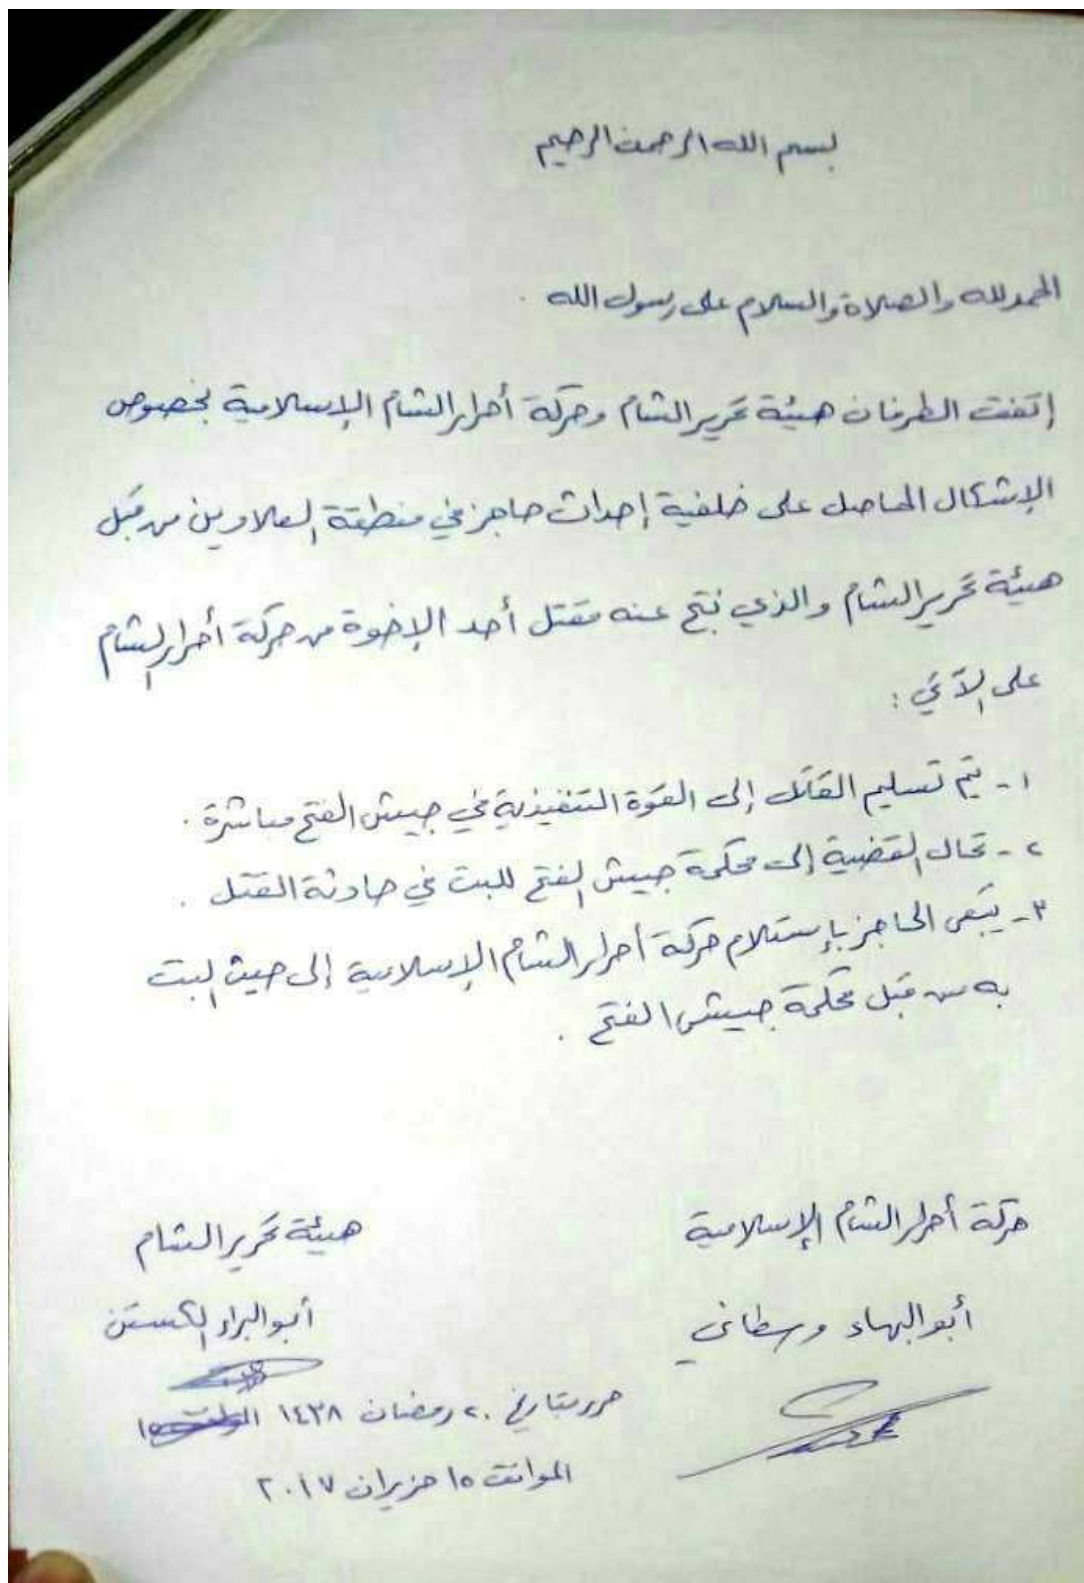 بسم الله الرحمن الرحيم
الحمد لله والصلاة والسلام على رسول الله .
إتفق الطرفان هيئة تحرير الشام وحركة أحرار الشام الإسلامية بخصوص
الإشكال الحاصل على خلفية إحداث حاجز في منطقة العلاوين من قبل
هيئة تحرير الشام والذي نتج عنه مقتل أحد الإخوة من حركة أحرار الشام
على الآتي :
١- يتم تسليم القاتل إلى القوة التنفيذية في جيش الفتح مباشرة .
٢- تحال القضية إلى محكمة جيش الفتح للبت في حادثة القتل .
٣- يبقى الحاجز بإستلام حركة أحرار الشام الإسلامية إلى حيث البت
به من قبل محكمة جيش الفتح .
حركة أحرار الشام الإسلامية
هيئة تحرير الشام
أبو البهاء وسطاني
أبو البراء
حرر بتاريخ ٢٠ رمضان ١٤٣٨
الموافق ١٥ حزيران ٢٠١٧